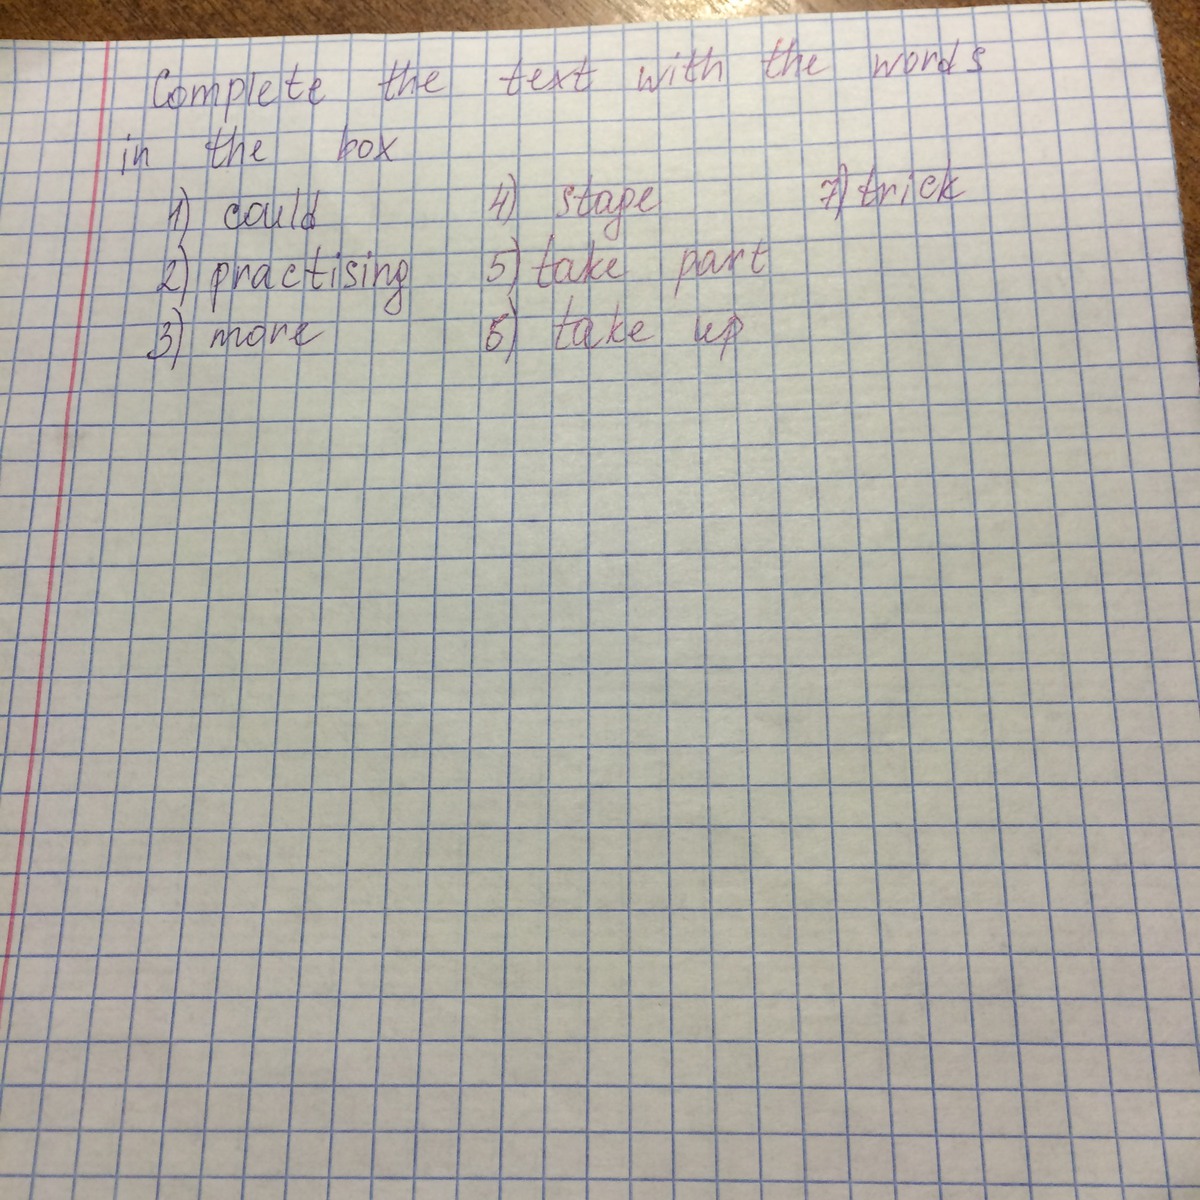 Complete the text with the words
in the box
1) could 4) stage 7) trick
2) practising 5) take part
3) more 6) take up